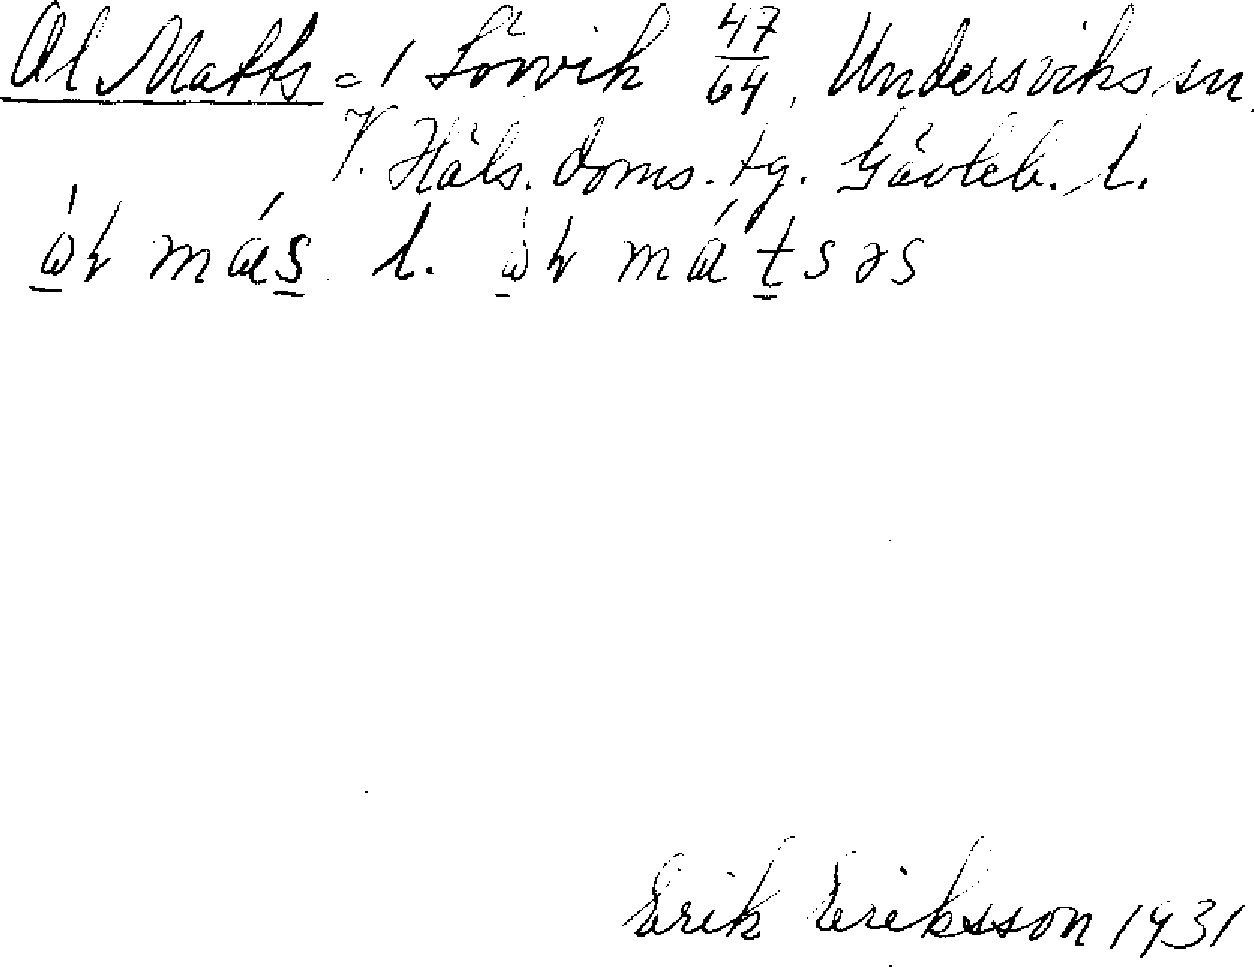 Ol Matts = / Lörvik 47/64, Undersviks sn.
V. Häls. doms. tg. Gävleb. l.
l.
Erik Eriksson 1931